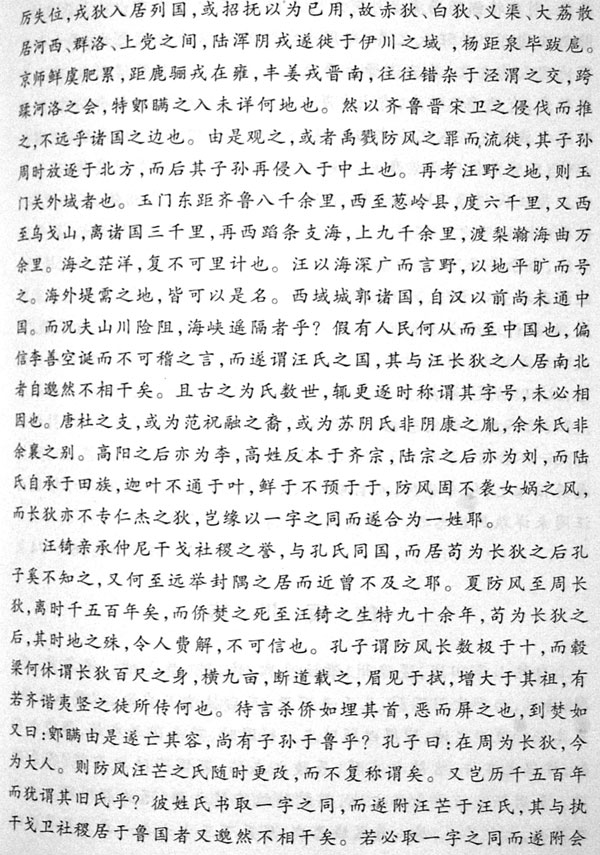 厉失位,戎狄入居列国,或招抚以为已用,故赤狄、白狄、义渠、大荔散
居河西、群洛、上党之间,陆浑阴戎遂徙于伊川之域,杨距泉毕跋扈。
京师鲜虞肥累,距鹿骊戎在雍,丰姜戎晋南,往往错杂于泾渭之交,跨
蹂河洛之会,特鄋瞒之入未详何地也。然以齐鲁晋宋卫之侵伐而推
之,不远乎诸国之边也。由是观之,或者禹戮防风之罪而流徙,其子孙
周时放逐于北方,而后其子孙再侵入于中土也。再考汪野之地,则玉
门关外域者也。玉门东距齐鲁八千余里,西至葱岭县,度六千里,又西
至乌戈山,离诸国三千里,再西蹈条支海,上九千余里,渡梨瀚海曲万
余里。海之茫洋,复不可里计也。汪以海深广而言野,以地平旷而号
之。海外堤霱之地,皆可以是名。西域城郭诸国,自汉以前尚未通中
国。而况夫山川险阻,海峡遥隔者乎?假有人民何从而至中国也,偏
信李善空诞而不可稽之言,而遂谓汪氏之国,其与汪长狄之人居南北
者自邈然不相干矣。且古之为氏数世,辄更逐时称谓其字号,未必相
因也。唐杜之支,或为范祝融之裔,或为苏阴氏非阴康之胤,余朱氏非
余襄之别。高阳之后亦为李,高姓反本于齐宗,陆宗之后亦为刘,而陆
氏自承于田族,迦叶不通于叶,鲜于不预于于,防风固不袭女娲之风,
而长狄亦不专仁杰之狄,岂缘以一字之同而遂合为一姓耶。
汪锜亲承仲尼干戈社稷之誉,与孔氏同国,而居苟为长狄之后孔
子奚不知之,又何至远举封隅之居而近曾不及之耶。夏防风至周长
狄,离时千五百年矣,而侨焚之死至汪锜之生特九十余年,苟为长狄之
后,其时地之殊,令人费解,不可信也。孔子谓防风长数极于十,而榖
梁何休谓长狄百尺之身,横九亩,断道载之,眉见于拭,增大于其祖,有
若齐谐夷坚之徒所传何也。待言杀侨如埋其首,恶而屏之也,到焚如
又曰:鄋瞒由是遂亡其容,尚有子孙于鲁乎?孔子曰:在周为长狄,今
为大人。则防风汪芒之氏随时更改,而不复称谓矣。又岂历千五百年
而犹谓其旧氏乎?彼姓氏书取一字之同,而遂附汪芒于汪氏,其与执
干戈卫社稷居于鲁国者又邈然不相干矣。若必取一字之同而遂附会